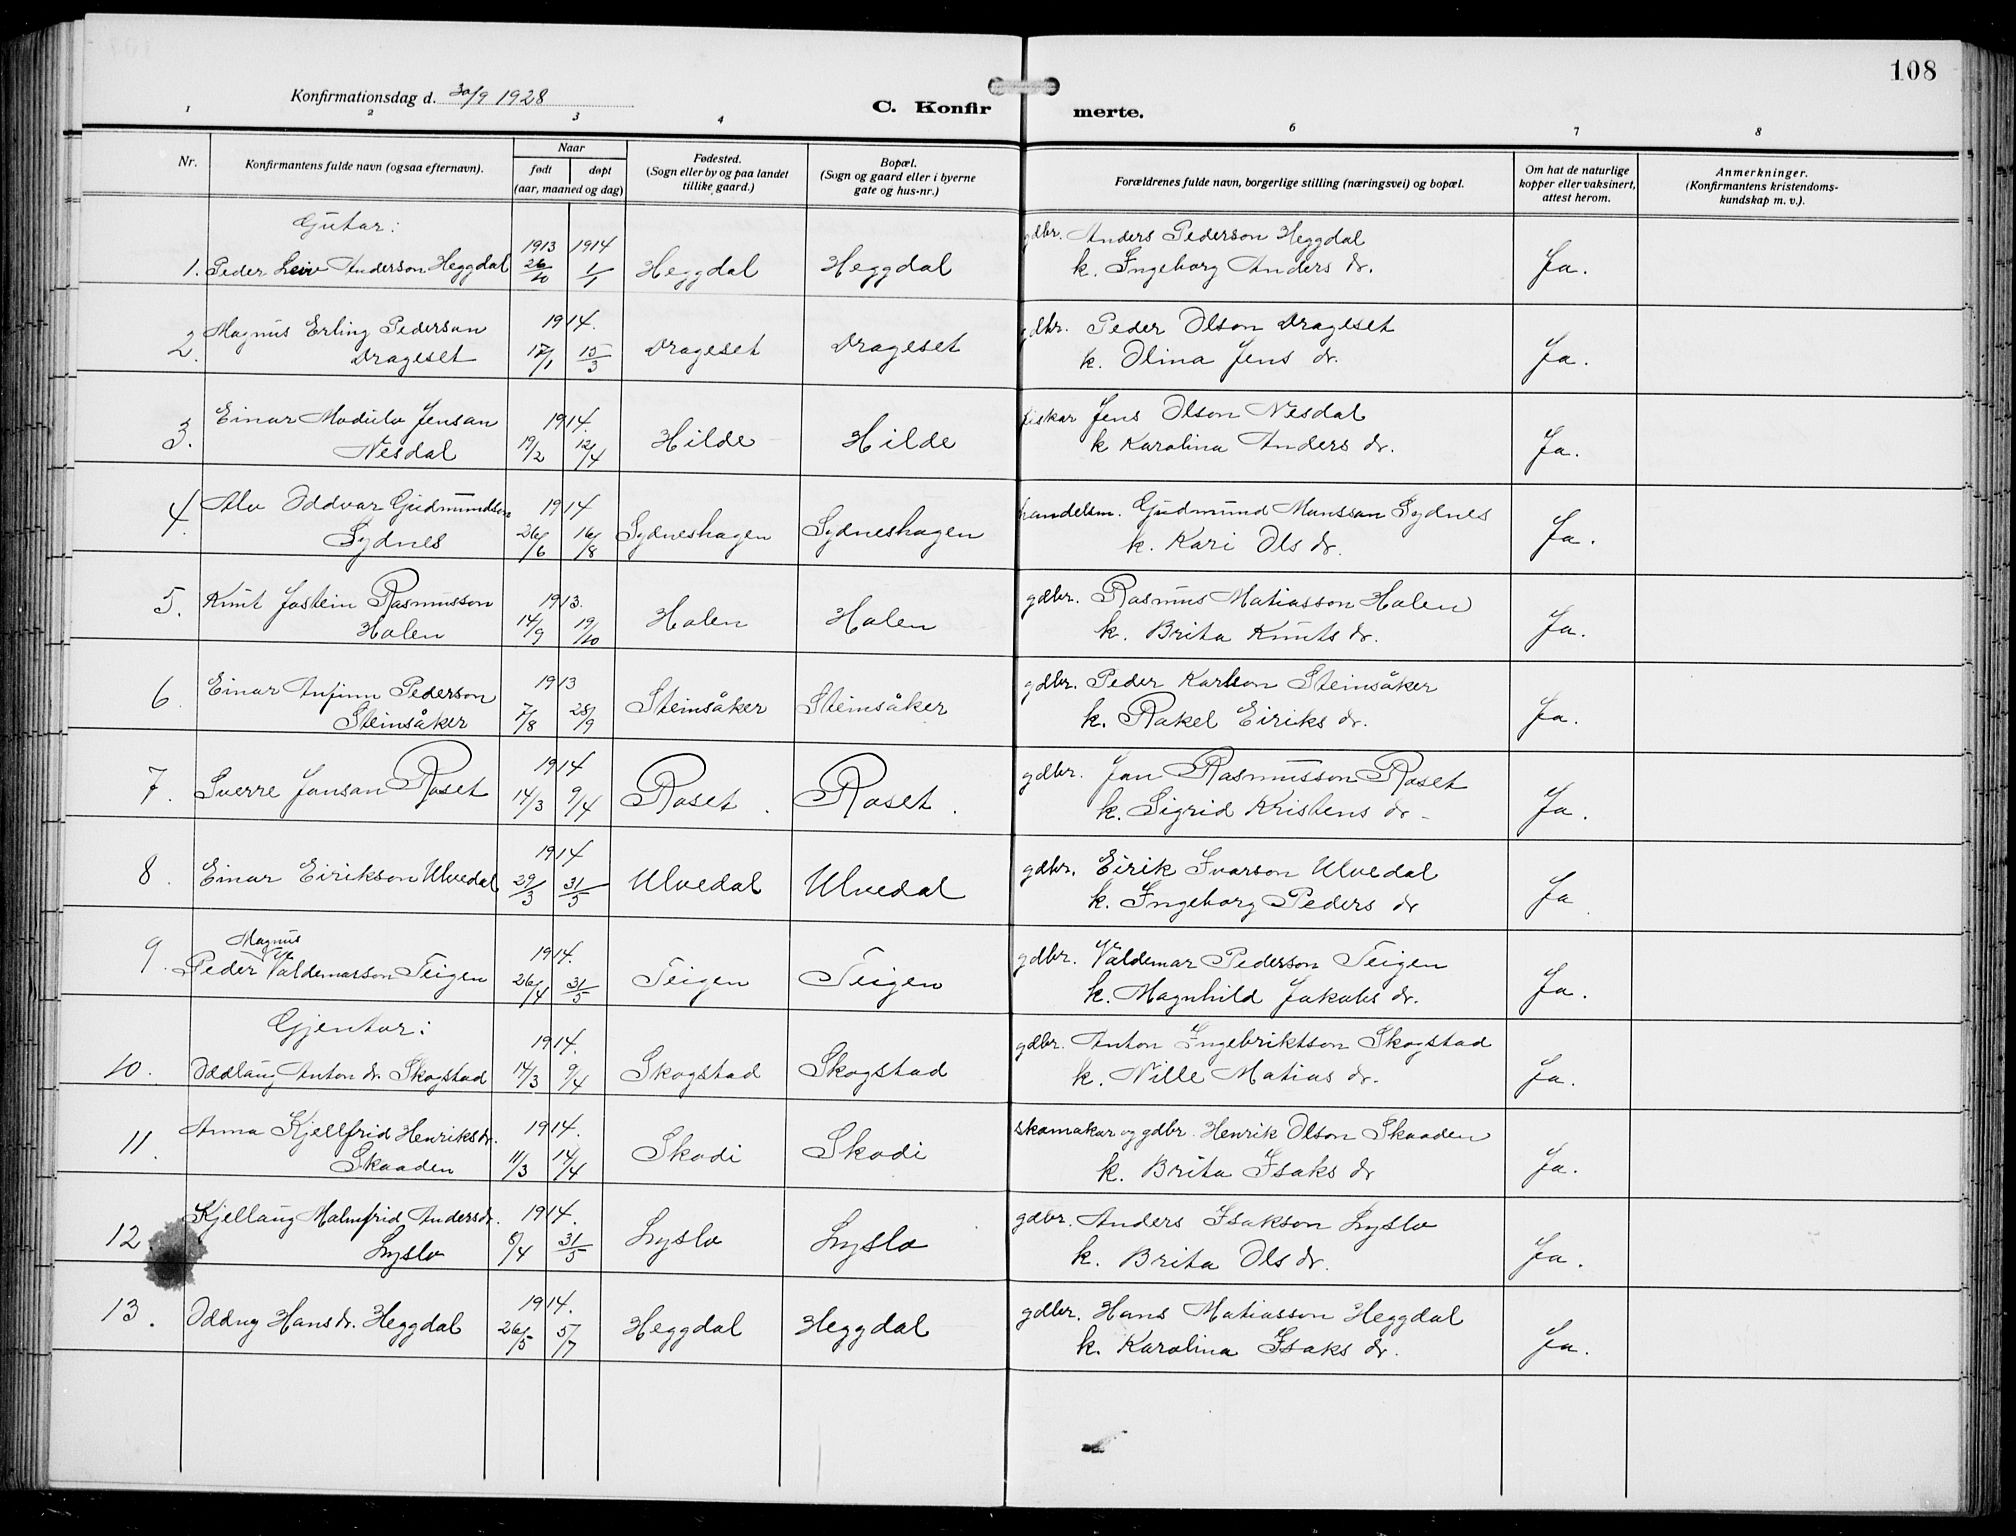 108
Konfirmationsdag d. 30/9 1928
C. Konfir merte.
1 2 3 4 6 7 8
Nr.
Konfirmantens fulde navn (ogsaa efternavn).
Naar
født døpt
(aar, maaned og dag)
Fødested.
(Sogn eller by og paa landet
tillike gaard.)
Bopæl.
(Sogn og gaard eller i byerne
gate og hus-nr.)
Forældrenes fulde navn, borgerlige stilling (næringsvei) og bopæl.
Om hat de naturlige
kopper eller vaksinert,
attest herom.
Anmerkninger.
(Konfirmantens kristendoms-
kundskap m. v.).
Gutar:
1913 1914 gdbr. Anders Pederson Heggdal
1. Peder Leiv Anderson Heggdal 26/10 1/1 Heggdal Heggdal k. Ingeborg Anders dr. Ja.
Magnus Erling Pederson 1914. gdbr. Peder Olson Drageset
2. Drageset 17/1 15/3 Drageset Drageset k. Olina Jens dr. Ja.
Einar Modulv Jenson 1914. fiskar Jens Olson Nesdal
3. Nesdal 19/2 12/4 Hilde Hilde k Karolina Anders dr. Ja.
Alv Oddvar Gudmundson 1914 handelsm. Gudmund Monsson Sydnes
4. Sydnes 26/6 16/8 Sydneshagen Sydneshagen k. Kari Ols dr. Ja.
5. Knut Jostein Rasmusson 1913. gdbr. Rasmus Matiasson Holen
Holen 14/9 19/10 Holen Holen k. Brita Knuts dr. Ja.
6. Einar Anfinn Pederson 1913 gdbr. Peder Karlson Steinsåker
Steinsåker 7/8 28/9 Steinsåker Steinsåker k. Rakel Eiriks dr. Ja.
1914 gdbr. Jon Rasmusson Roset
7. Sverre Jonson Roset 14/3 9/4 Roset. Roset. k. Sigrid Kristens dr - Ja.
1914 gdbr. Eirik Ivarson Ulvedal
8. Einar Eirikson Ulvedal 29/3 31/5 Ulvedal Ulvedal k. Ingeborg Peders dr Ja
Magnus 1914. gdbr. Valdemar Pederson Teigen
9. Peder Valdemarson Teigen 26/4 31/5 Teigen Teigen k. Magnhild Jakobs dr. Ja.
Gjentor: 1914. gdbr. Anton Ingebriktson Skogstad
10. Oddlaug Anton dr. Skogstad 17/3 9/4 Skogstad Skogstad k. Nille Matias dr. Ja.
Anna Kjellfrid Henriksdr. 1914. skomakar og gdbr. Henrik Olson Skaaden
11. Skaaden 11/3 14/4 Skodi Skodi k. Brita Isaks dr Ja.
Kjellaug Malmfrid Andersdr. 1914. gdbr. Anders Isakson Lyslo
12. Lyslo 8/4 31/5 Lyslo Lyslo k. Brita Ols dr. Ja.
1914. gdbr. Hans Matiasson Heggdal
13. Oddny Hansdr. Heggdal 26/5 5/7 Heggdal Heggdal k. Karolina Isaks dr. Ja.